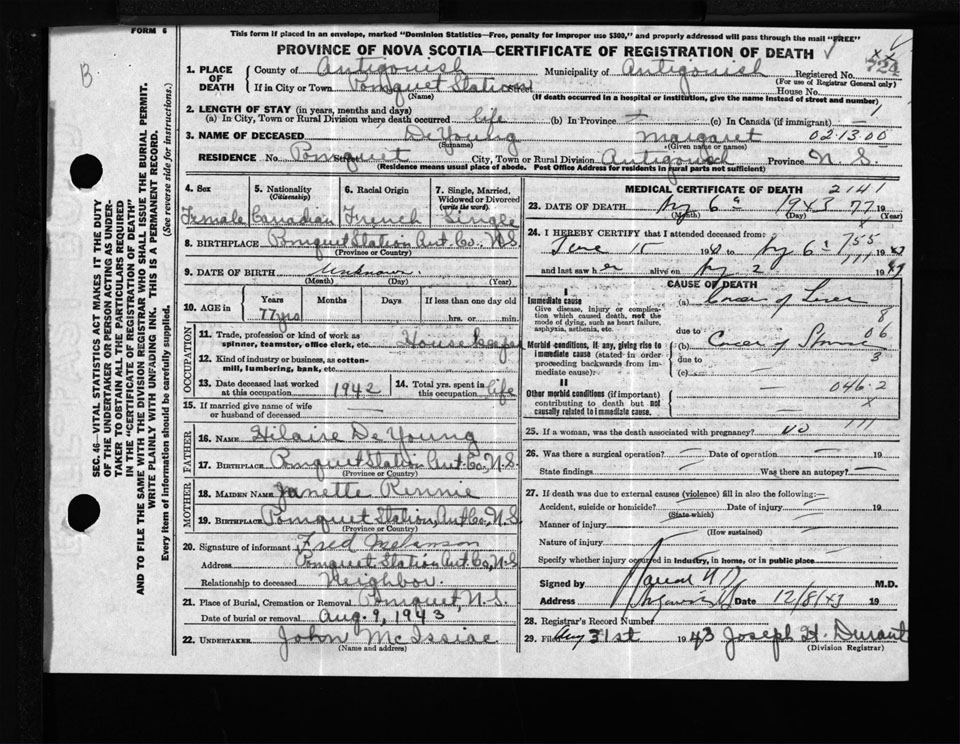 FORM 6
This form if placed in an envelope, marked "Dominion Statistics—Free, penalty for improper use $300," and properly addressed will pass through the mail "FREE"
PROVINCE OF NOVA SCOTIA—CERTIFICATE OF REGISTRATION OF DEATH
B
SEC. 46—VITAL STATISTICS ACT MAKES IT THE DUTY
OF THE UNDERTAKER OR PERSON ACTING AS UNDER-
TAKER TO OBTAIN ALL THE PARTICULARS REQUIRED
IN THE "CERTIFICATE OF REGISTRATION OF DEATH"
AND TO FILE THE SAME WITH THE DIVISION REGISTRAR WHO SHALL ISSUE THE BURIAL PERMIT.
WRITE PLAINLY WITH UNFADING INK. THIS IS A PERMANENT RECORD.
Every item of information should be carefully supplied. (See reverse side for instructions.)
1. PLACE OF DEATH
County of Antigonish Municipality of Antigonish Registered No.
(For use of Registrar General only)
If in City or Town Pomquet Station House No.
(Name) (If death occurred in a hospital or institution, give the name instead of street and number)
2. LENGTH OF STAY (in years, months and days)
(a) In City, Town or Rural Division where death occurred life (b) In Province — (c) In Canada (if immigrant) —
3. NAME OF DECEASED DeYoung Margaret 02.13.00
(Surname) (Given name or names)
RESIDENCE No Pomquet City, Town or Rural Division Antigonish Province N.S.
(Residence means usual place of abode. Post Office Address for residents in rural parts not sufficient)
4. Sex Female
5. Nationality (Citizenship) Canadian
6. Racial Origin French
7. Single, Married, Widowed or Divorced (write the word) Single
8. BIRTHPLACE Pomquet Station Ant. Co. N.S.
(Province or Country)
9. DATE OF BIRTH Unknown.
(Month) (Day) (Year)
10. AGE in Years 77yrs Months Days If less than one day old
hrs. or min.
OCCUPATION
11. Trade, profession or kind of work as spinner, teamster, office clerk, etc. Housekeeper
12. Kind of industry or business, as cotton-mill, lumbering, bank, etc.
13. Date deceased last worked at this occupation 1942 14. Total yrs. spent in this occupation life
15. If married give name of wife or husband of deceased —
FATHER
16. NAME Hilaire De Young
17. BIRTHPLACE Pomquet Station Ant. Co. N.S.
(Province or Country)
MOTHER
18. MAIDEN NAME Janette Rennie
19. BIRTHPLACE Pomquet Station, Ant Co, N.S.
(Province or Country)
20. Signature of informant Fred Melanson
Address Pomquet Station Ant. Co, N.S
Relationship to deceased Neighbor.
21. Place of Burial, Cremation or Removal Pomquet, N.S.
Date of burial or removal Aug. 9, 1943
22. UNDERTAKER John McIssiac
(Name and address)
MEDICAL CERTIFICATE OF DEATH 2141
23. DATE OF DEATH 6 1943 77 19
(Month) (Day) (Year)
24. I HEREBY CERTIFY that I attended deceased from: 755
June 15 19 to 6 19 43
and last saw her alive on 2 19 43
CAUSE OF DEATH
I
Immediate cause (a) Cancer of Liver
Give disease, injury or complication which caused death, not the mode of dying, such as heart failure, asphyxia, asthenia, etc. due to
8
06
Morbid conditions, if any, giving rise to immediate cause (stated in order proceeding backwards from immediate cause): (b) Cancer of
due to 3
(c) —
II
Other morbid conditions (if important) contributing to death but not causally related to immediate cause.
046.2
X
25. If a woman, was the death associated with pregnancy? no
26. Was there a surgical operation? — Date of operation — 19
State findings — Was there an autopsy? —
27. If death was due to external causes (violence) fill in also the following:—
Accident, suicide or homicide? — Date of injury 19
(State which)
Manner of injury —
(How sustained)
Nature of injury —
Specify whether injury occurred in industry, in home, or in public place
Signed by M.D.
Address Date 12/8/43 19
28. Registrar's Record Number
29. Filed Aug 31st 1943 Joseph H. Durant
(Division Registrar)